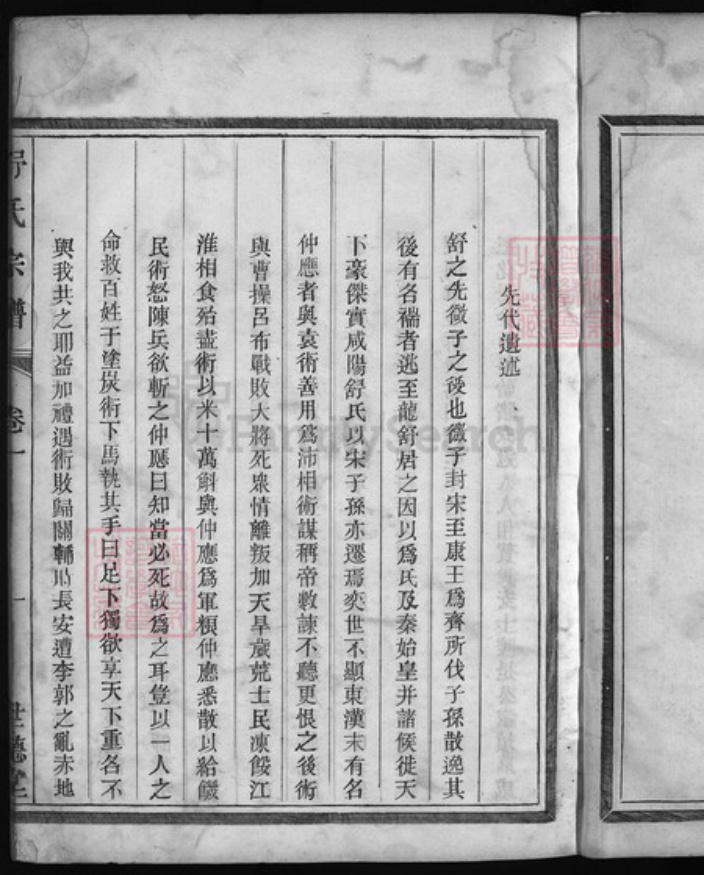 先代遺述
舒之先微子之後也微子封宋至康王爲齊所伐子孫散逸其
後有名襦者逃至龍舒居之因以爲氏及秦始皇并諸候徙天
下豪傑實咸陽舒氏以宋子孫亦遷焉奕世不顯東漢末有名
仲應者與袁術善用爲沛相術謀稱帝數諫不聽更恨之後術
與曹操呂布戰敗大將死衆情離叛加天旱歲荒士民凍餒江
淮相食殆盡術以米十萬斛與仲應爲軍糧仲應悉散以給饑
民術怒陳兵欲斬之仲應曰知當必死故爲之耳寧以一人之
命救百姓于塗炭術下馬執其手曰足下獨欲享天下重名不
與我共之耶益加禮遇術敗歸關輔 長安遭李郭之亂赤地
舒氏宗譜 卷一 一 世德堂
FamilySearch